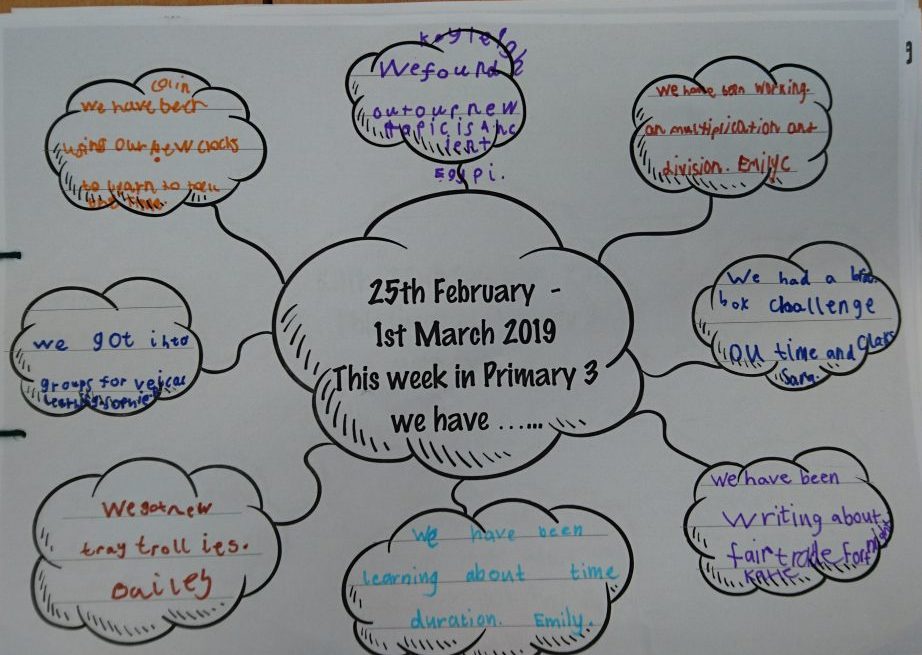 Colin
we have been
using our new clocks
to learn to tell
the time.
kayleigh
We found
out our new
topic is Anc
ient
Egypt.
we have been working.
on multiplication and
division. Emily C
We had a
box challenge
on time and
Sara.
25th February -
1st March 2019
This week in Primary 3
we have ......
we got into
groups for
learning. sophie
We got new
tray trollies.
Bailey
We have been
learning about time
duration. Emily.
we have been
Writing about
fairtrade
KATIE